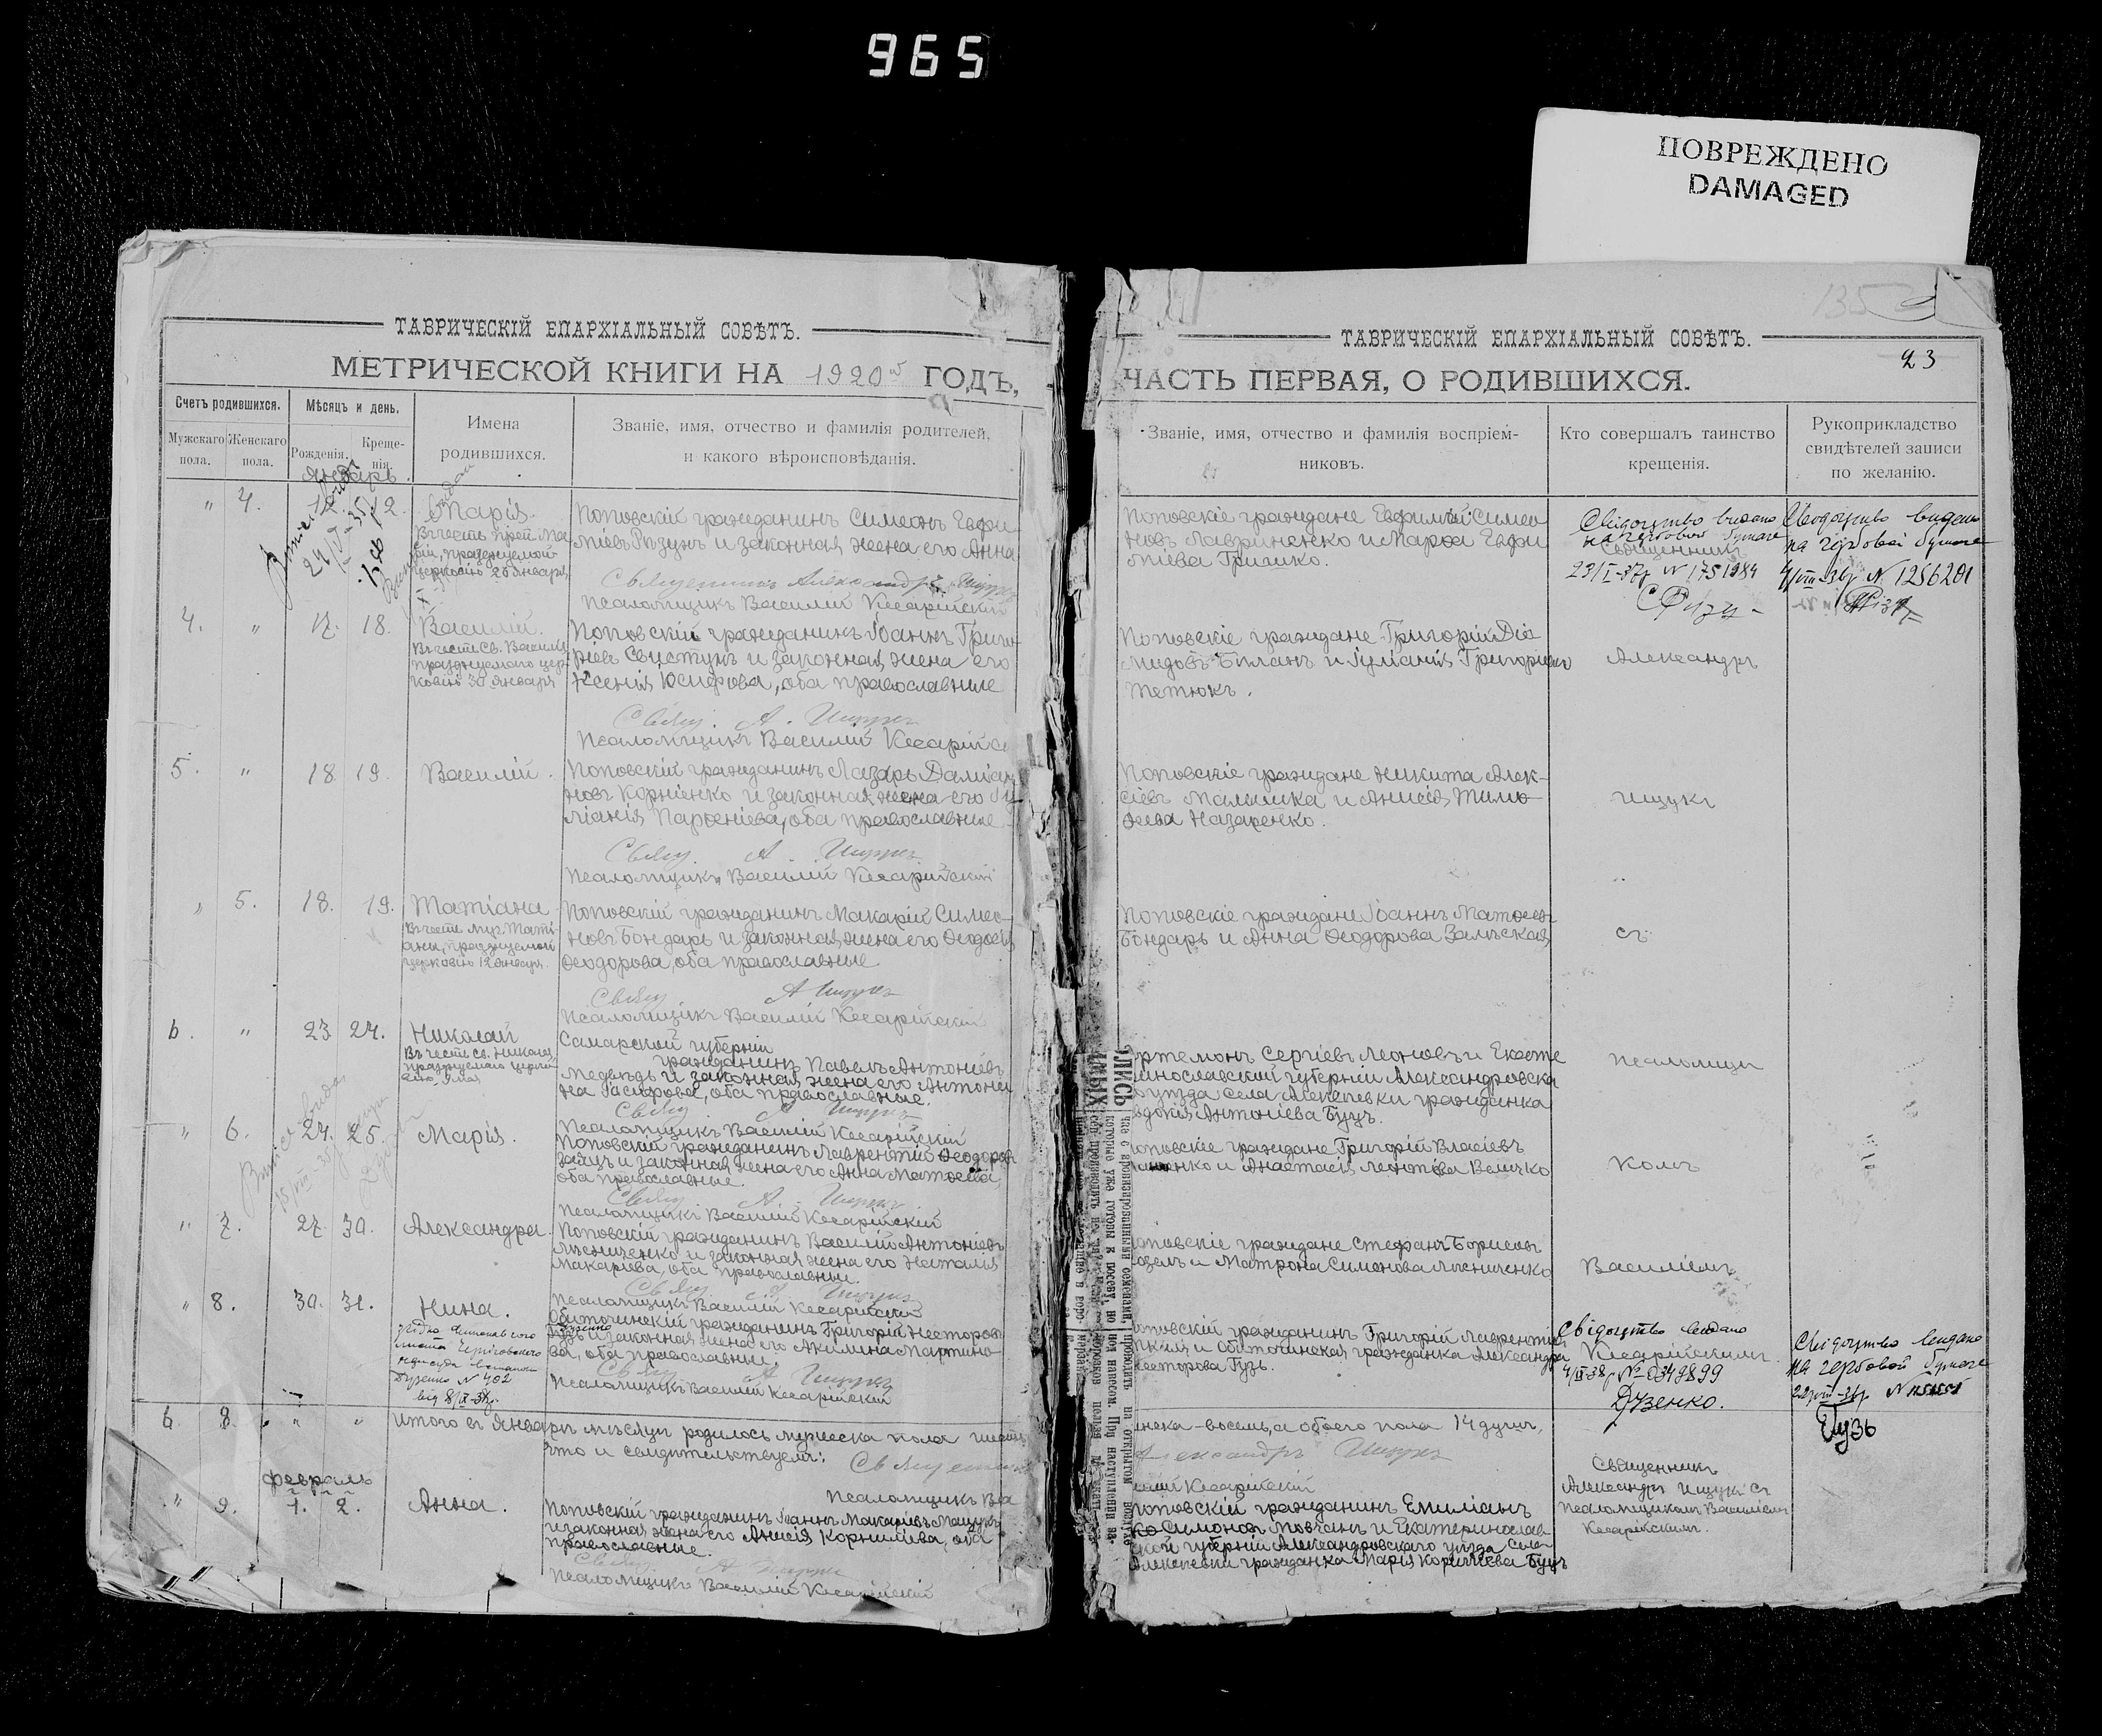 965
ПОВРЕЖДЕНО
DAMAGED
ТАВРИЧЕСКІЙ ЕПАРХІАЛЬНЫЙ СОВѢТЪ.
МЕТРИЧЕСКОЙ КНИГИ НА 1920й ГОДЪ,
Счетъ родившихся.
Мужскаго пола.
Женскаго пола.
Мѣсяцъ и день.
Рожденія.
Крещенія.
Имена
родившихся.
Званіе, имя, отчество и фамилія родителей,
и какого вѣроисповѣданія.
Январь
" 4. 12. 12.
Марія
Въ честь преп. Ма
ріи, празднуемой
церковію 26 января
Поповскій гражданинъ Симеонъ Евфи
міевъ Ризунъ и законная жена его Анна
Священникъ Александръ Ищукъ
Псаломщикъ Василий Кесарійскій
4. " 17. 18.
Василій.
Въ честь Св. Василія
празднуемаго цер
ковію 30 января
Поповскій гражданинъ Іоаннъ Григо
ріевъ Свистунъ и законная жена его
Ксенія Юсифова, оба православные
Свящ. А. Ищукъ
Псаломщикъ Василий Кесарійс
5. " 18. 19.
Василій.
Поповскій гражданинъ Лазарь Даміан
новъ Корніенко и законная жена его Іу
ліанія Парфеніева, оба православные
Свящ. А. Ищукъ
Псаломщикъ Василий Кесарійскій
" 5. 18. 19.
Татіана
Въ честь муч. Таті
аны, празднуемой
церковію 12 января.
Поповскій гражданинъ Макарій Симео
новъ Бондарь и законная жена его Феодосія
Феодорова, оба православные.
Свящ А Ищукъ
Псаломщикъ Василий Кесарійскій
6. " 23 24.
Николай
Въ честь св. Николая
празднуемаго церко
вію 9 мая
Самарской губерніи
гражданинъ Павелъ Антоніевъ
Медвѣдь и законная жена его Антони
на Іосифова, оба православные.
Свящ А Ищукъ
Псаломщикъ Василий Кесарійскій
" 6. 24. 25.
Марія.
Поповскій гражданинъ Лаврентій Феодоров
Заяцъ и законная жена его Анна Матфеева,
оба православные.
Свящ А. Ищукъ
Псаломщикъ Василий Кесарійскій
" 7. 27. 30.
Александра.
Поповскій гражданинъ Василій Антоніевъ
Лѣсниченко и законная жена его Наталія
Макаріева, оба православные.
Свящ А Ищукъ
Псаломщикъ Василий Кесарійскій
" 8. 30. 31.
Нина.
Обиточенскій гражданинъ Григорій Несторов
Гузь и законная жена его Акилина Мартино
ва, оба православные.
Свящ А Ищукъ
Псаломщикъ Василий Кесарійскій
6. 8. " " "
Итого въ Январѣ мѣсяцѣ родилось мужеска пола шесть
что и свидѣтельствуемъ: Священникъ
Псаломщикъ Ва
Февраль
" 9. 1. 2.
Анна.
Поповскій гражданинъ Іоаннъ Макаріевъ Мацукъ
и законная жена его Анисія Корниліева, оба
православные.
Свящ А Ищукъ
Псаломщикъ Василий Кесарійскій
ТАВРИЧЕСКІЙ ЕПАРХІАЛЬНЫЙ СОВѢТЪ.
23
ЧАСТЬ ПЕРВАЯ, О РОДИВШИХСЯ.
Званіе, имя, отчество и фамилія воспріем-
никовъ.
Кто совершалъ таинство
крещенія.
Рукоприкладство
свидѣтелей записи
по желанію.
Поповскіе граждане Евфимій Симео
новъ Лавриненко и Марфа Евфи
міева Гришко.
Свідоцтво видано
на гербовой бумаге
Священникъ
23/I-37р N 1751984
СРизу-
Свідоцтво видано
на гербовой бумаге
4/VIII-36р N 1256201
Поповскіе граждане Григорій Діо
мидовъ Біланъ и Іуліанія Григоріева
Тетюкъ.
Александръ
Поповскіе граждане Никита Алек-
сіевъ Малышка и Анисія Тимо-
феева Назаренко.
Ищукъ
Поповскіе граждане Іоаннъ Матфеевъ
Бондарь и Анна Феодорова Замѣская
съ
ртемонъ Сергіевъ Леоновъ и Екате
инославской губерніи Александровска
уѣзда села Алексѣевки гражданка
вдокія Антоніева Буцъ.
псаломщи
оповскіе граждане Григорій Власіевъ
енко и Анастасія Леонтіева Величко
комъ
оповскіе граждане Стефанъ Борисовъ
озелъ и Матрона Симонова Лѣсниченко
Василіемъ
оповскій гражданинъ Григорій Лаврентіев
и Обиточенская гражданка Александра
Несторова Гузь.
Свідоцтво видано
Кесарійскимъ.
4/IX-38р №-0349899
ДУзенко.
Свідоцтво видано
на гербовой бумаге
Гузь
нска-восемь, а обоего пола 14 душъ,
лександръ Ищукъ
илий Кесарійскій
Поповскій гражданинъ Емиліанъ
Симоновъ Мовчанъ и Екатеринослав
ской губерніи Александровскаго уѣзда села
Алексѣевки гражданка Марія Корниліева Буцъ
Священникъ
Александръ Ищукъ съ
псаломщикомъ Василіемъ
Кесарійскимъ.